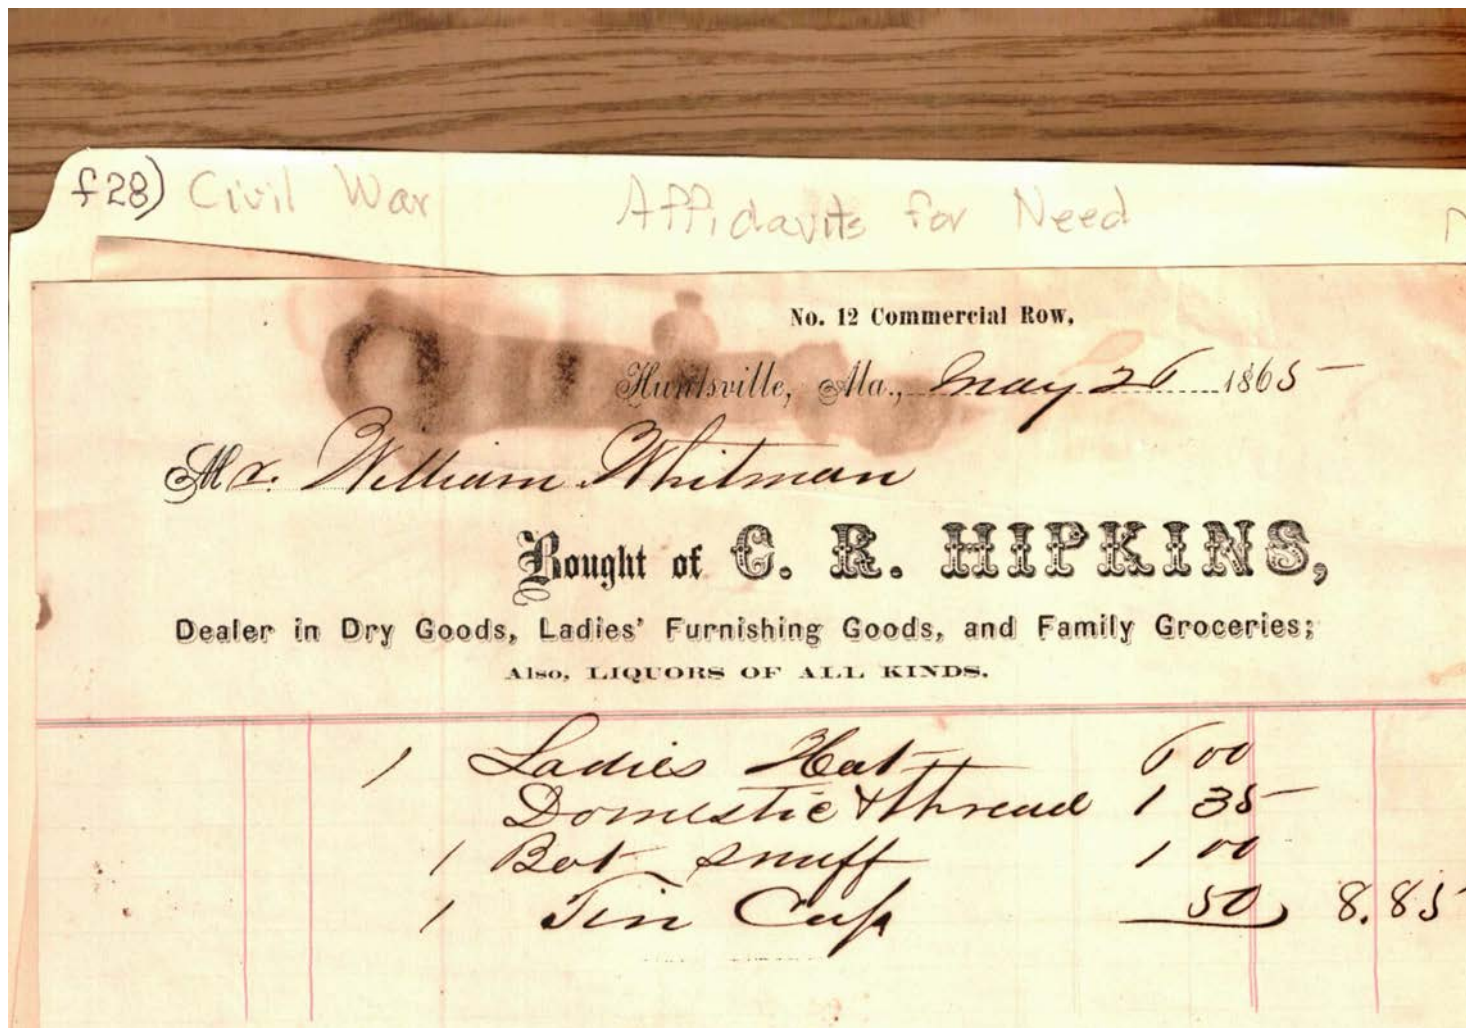 f28) Civil War Affidavits for Need
No. 12 Commercial Row,
Huntsville, Ala., May 26 1865
Mr. William Whitman
Bought of C. R. HIPKINS,
Dealer in Dry Goods, Ladies' Furnishing Goods, and Family Groceries;
Also, LIQUORS OF ALL KINDS.
1 Ladies Hat 6 00
Domestic & thread 1 35
1 Bot snuff 1 00
1 Tin Cup 50 8.85